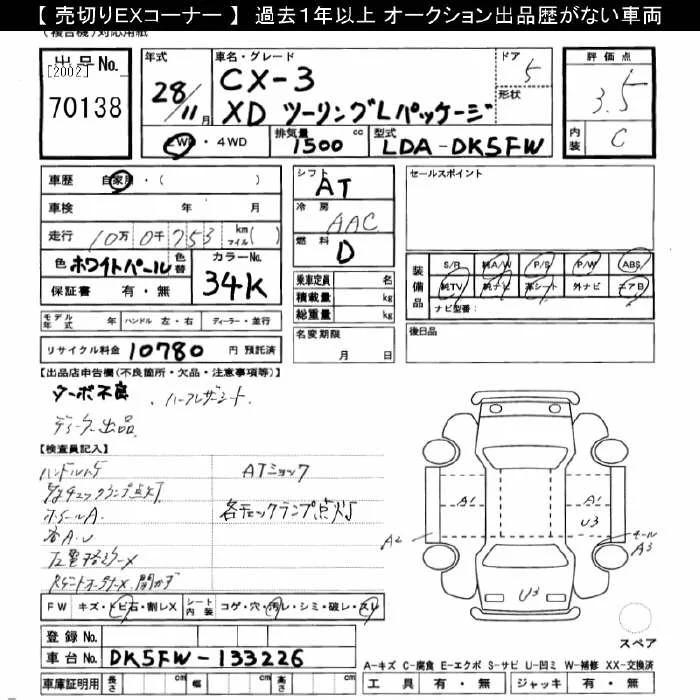 【 売切りEXコーナー 】 過去1年以上 オークション出品歴がない車両
(複合機)対応用紙
出品No.
[2002]
70138
年式
28/11月
車名・グレード
CX-3
XD ツーリングLパッケージ
ドア
5
形状
評価点
3.5
内装
C
2WD・4WD
排気量
1500 cc
型式
LDA-DK5FW
車歴 自家用・( )
車検 年 月
走行 10万0千753 km マイル( )
色 ホワイトパール 色替
カラーNo. 34K
保証書 有・無
シフト
AT
冷房
AAC
燃料
D
乗車定員 名
積載量 kg
総重量 kg
セールスポイント
装備品
S/R 純A/W P/S P/W ABS
純TV 純ナビ 革シート 外ナビ エアB
ナビ型番:
モデル年式 年 ハンドル 左・右 ディーラー・並行
リサイクル料金 10780 円 預託済
名変期限
月 日
後日品
【出品店申告欄(不良箇所・欠品・注意事項等)】
ターボ不良 . ハーフレザーシート
ディーラー出品
【検査員記入】
ATショック
各チェックランプ点灯
ホイールA
各A.U
FW キズ・トビ石・割レX シート内装 コゲ・穴・汚レ・シミ・破レ・スレ
A1
A1
U3
A2
ホイール
A3
U3
スペア
登録No.
車台No. DK5FW-133226
車庫証明用 長さ cm 幅 cm 高さ cm
A-キズ C-腐食 E-エクボ S-サビ U-凹ミ W-補修 XX-交換済
工具 有・無 ジャッキ 有・無